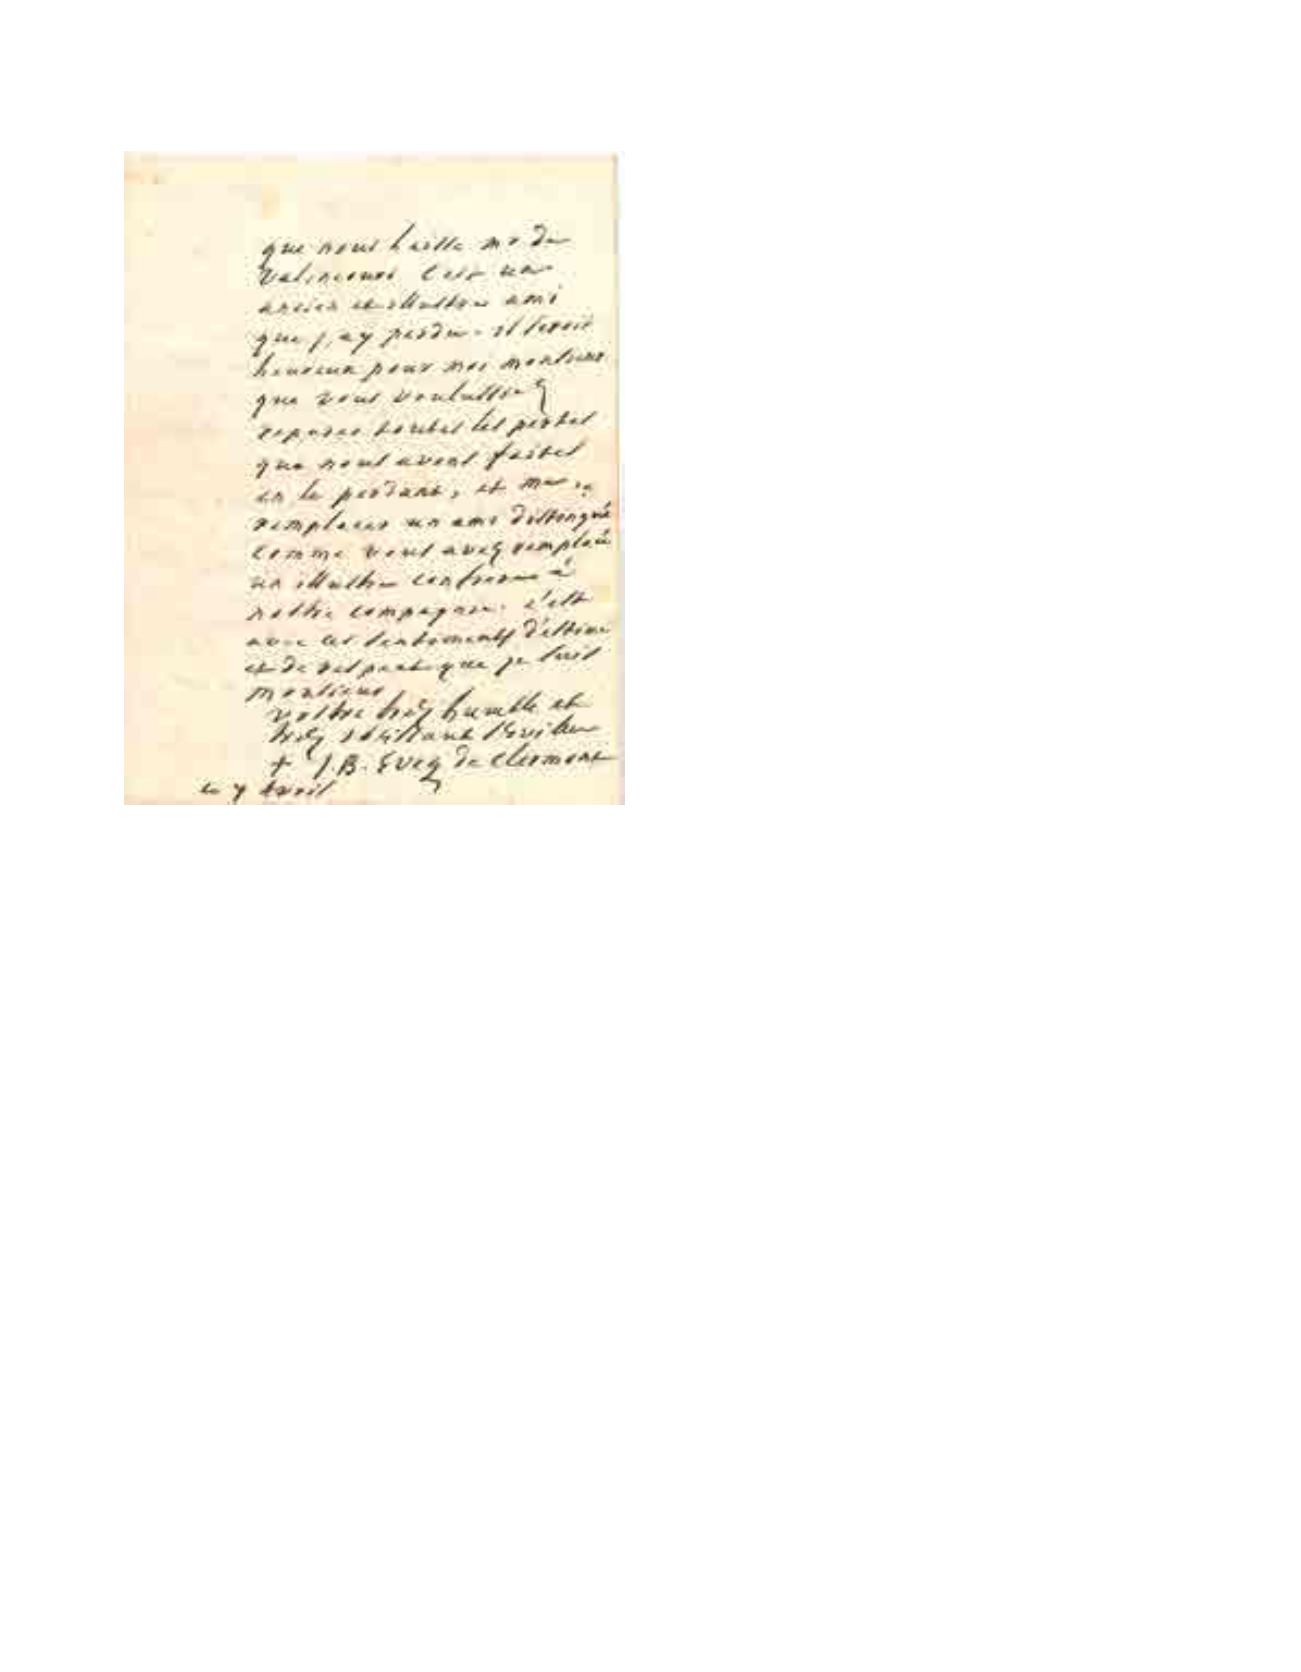 que nous laisse mr de
Valincourt c'est un
ancien et illustre ami
que j'ay perdu. il seroit
heureux pour moi monsieur
que vous voulussiez
reparer toutes les pertes
que nous avons faites
en le perdant, et me
remplacer un ami distingué
comme vous avez remplacé
un illustre confrere à
nostre compagnie. c'est
avec ces sentiments d'estime
et de respect que je suis
monsieur
vostre trés humble et
trés obéissant serviteur
+ J.B. Eveq de Clermont
le 7 Avril